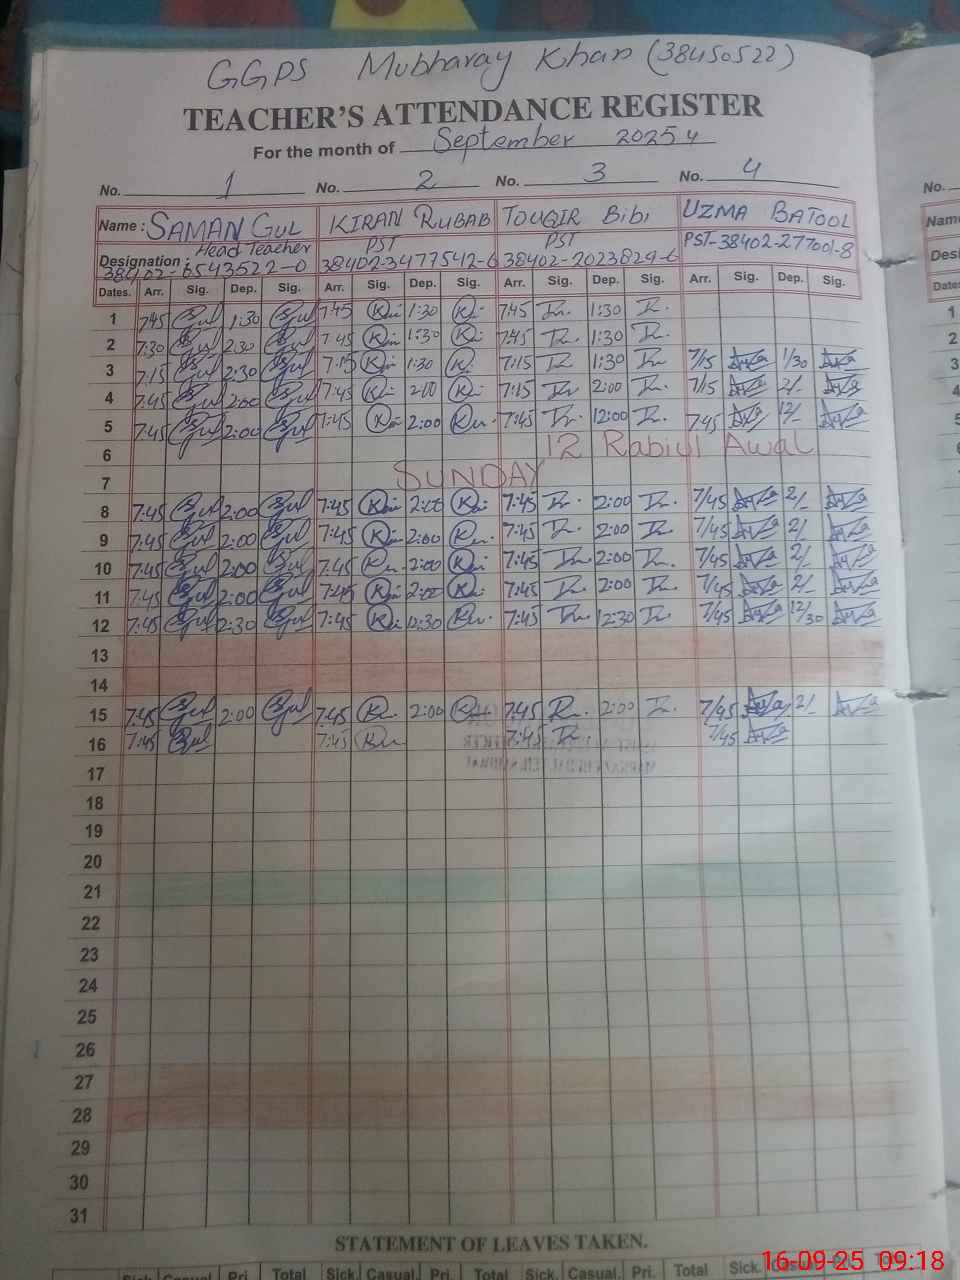 GGPS Mubharay Khan (38450522)
TEACHER'S ATTENDANCE REGISTER
For the month of September 2025
No. 1 No. 2 No. 3 No. 4
Name : SAMAN GUL KIRAN RUBAB TOUQIR Bibi UZMA BATOOL
Designation : Head Teacher PST PST PST-38402-277001-8
38402-6543522-0 38402-3477542-6 38402-2023829-6
Dates. Arr. Sig. Dep. Sig. Arr. Sig. Dep. Sig. Arr. Sig. Dep. Sig. Arr. Sig. Dep. Sig.
1 7:45 Gul 1:30 Gul 7:45 1:30 7:45 1:30
2 7:30 Gul 2:30 Gul 7:45 1:30 7:45 1:30
3 7:15 Gul 2:30 Gul 7:15 1:30 7:15 1:30 7/15 1/30
4 7:45 Gul 2:00 Gul 7:45 2:00 7:15 2:00 7/15 2/
5 7:45 Gul 2:00 Gul 7:45 2:00 7:45 12:00 7:45 12/
6 12 Rabiul Awal
7 SUNDAY
8 7:45 Gul 2:00 Gul 7:45 2:00 7:45 2:00 7/45 2/
9 7:45 Gul 2:00 Gul 7:45 2:00 7:45 2:00 7/45 2/
10 7:45 Gul 2:00 Gul 7:45 2:00 7:45 2:00 7/45 2/
11 7:45 Gul 2:00 Gul 7:45 2:00 7:45 2:00 7/45 2/
12 7:45 Gul 2:30 Gul 7:45 12:30 7:45 12:30 7/45 12/30
13
14
15 7:45 Gul 2:00 Gul 7:45 2:00 7:45 2:00 7/45 2/
16 7:45 Gul 7:45 7:45 7/45
17
18
19
20
21
22
23
24
25
26
27
28
29
30
31
STATEMENT OF LEAVES TAKEN.
Sick. Casual. Pri. Total Sick. Casual. Pri. Total Sick. Casual. Pri. Total Sick. Casual. Pri. Total
16-09-25 09:18